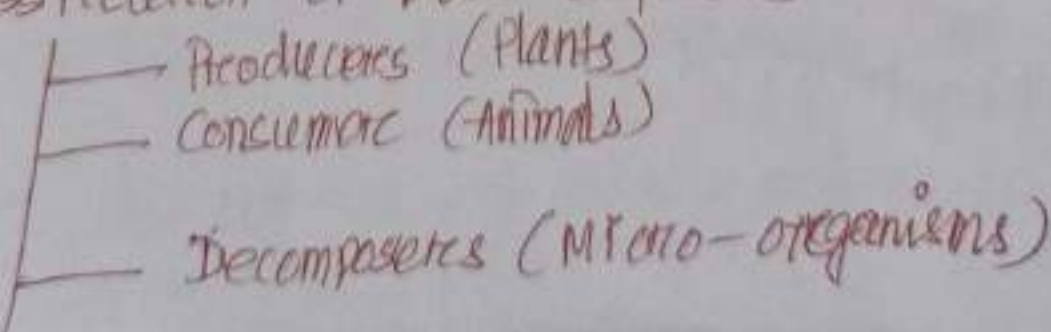 Producers (Plants)
Consumer (Animals)
Decomposers (Micro-organisms)